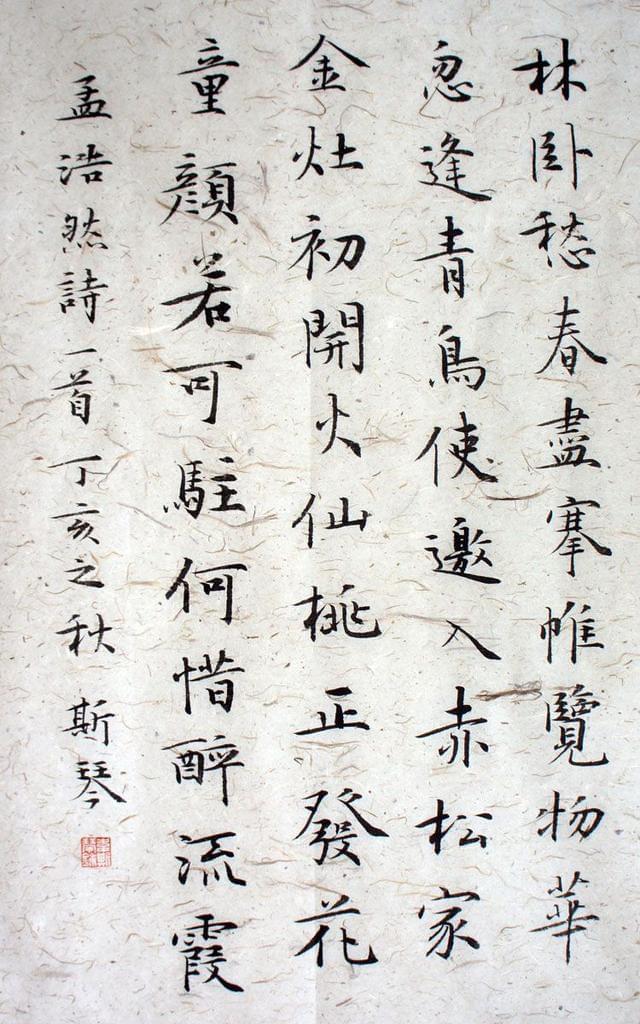 林卧愁春盡搴帷覽物華
忽逢青鳥使邀入赤松家
金灶初開火仙桃正發花
童顔若可駐何惜醉流霞
孟浩然詩一首丁亥之秋 斯琴